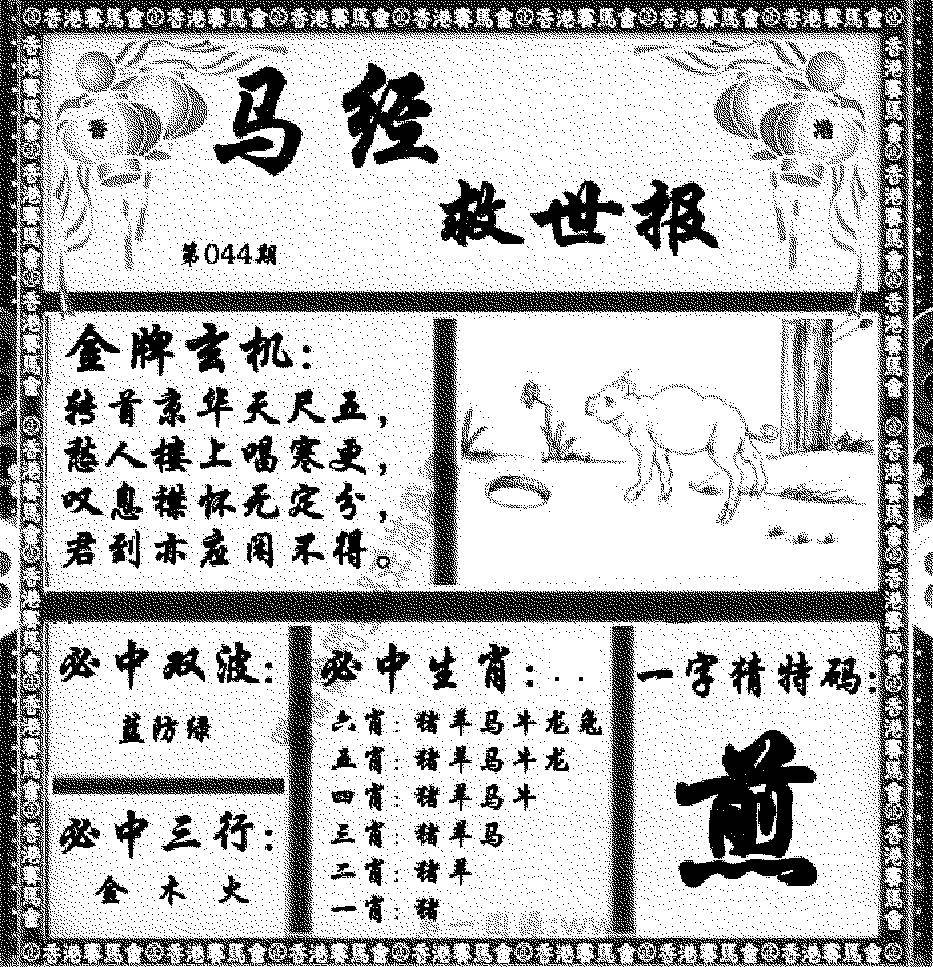 香港賽馬會香港賽馬會香港賽馬會香港賽馬會香港賽馬會香港賽馬會香港賽馬會
香
港
马经
救世报
第044期
金牌玄机：
转首京华天尺五，
愁人楼上唱寒更，
叹息襟怀无定分，
君到亦应闲不得。
必中双波：
蓝防绿
必中三行：
金 木 火
必中生肖：..
六肖：猪羊马牛龙兔
五肖：猪羊马牛龙
四肖：猪羊马牛
三肖：猪羊马
二肖：猪羊
一肖：猪
一字猜特码：
煎
香港賽馬會香港賽馬會香港賽馬會香港賽馬會香港賽馬會香港賽馬會香港賽馬會